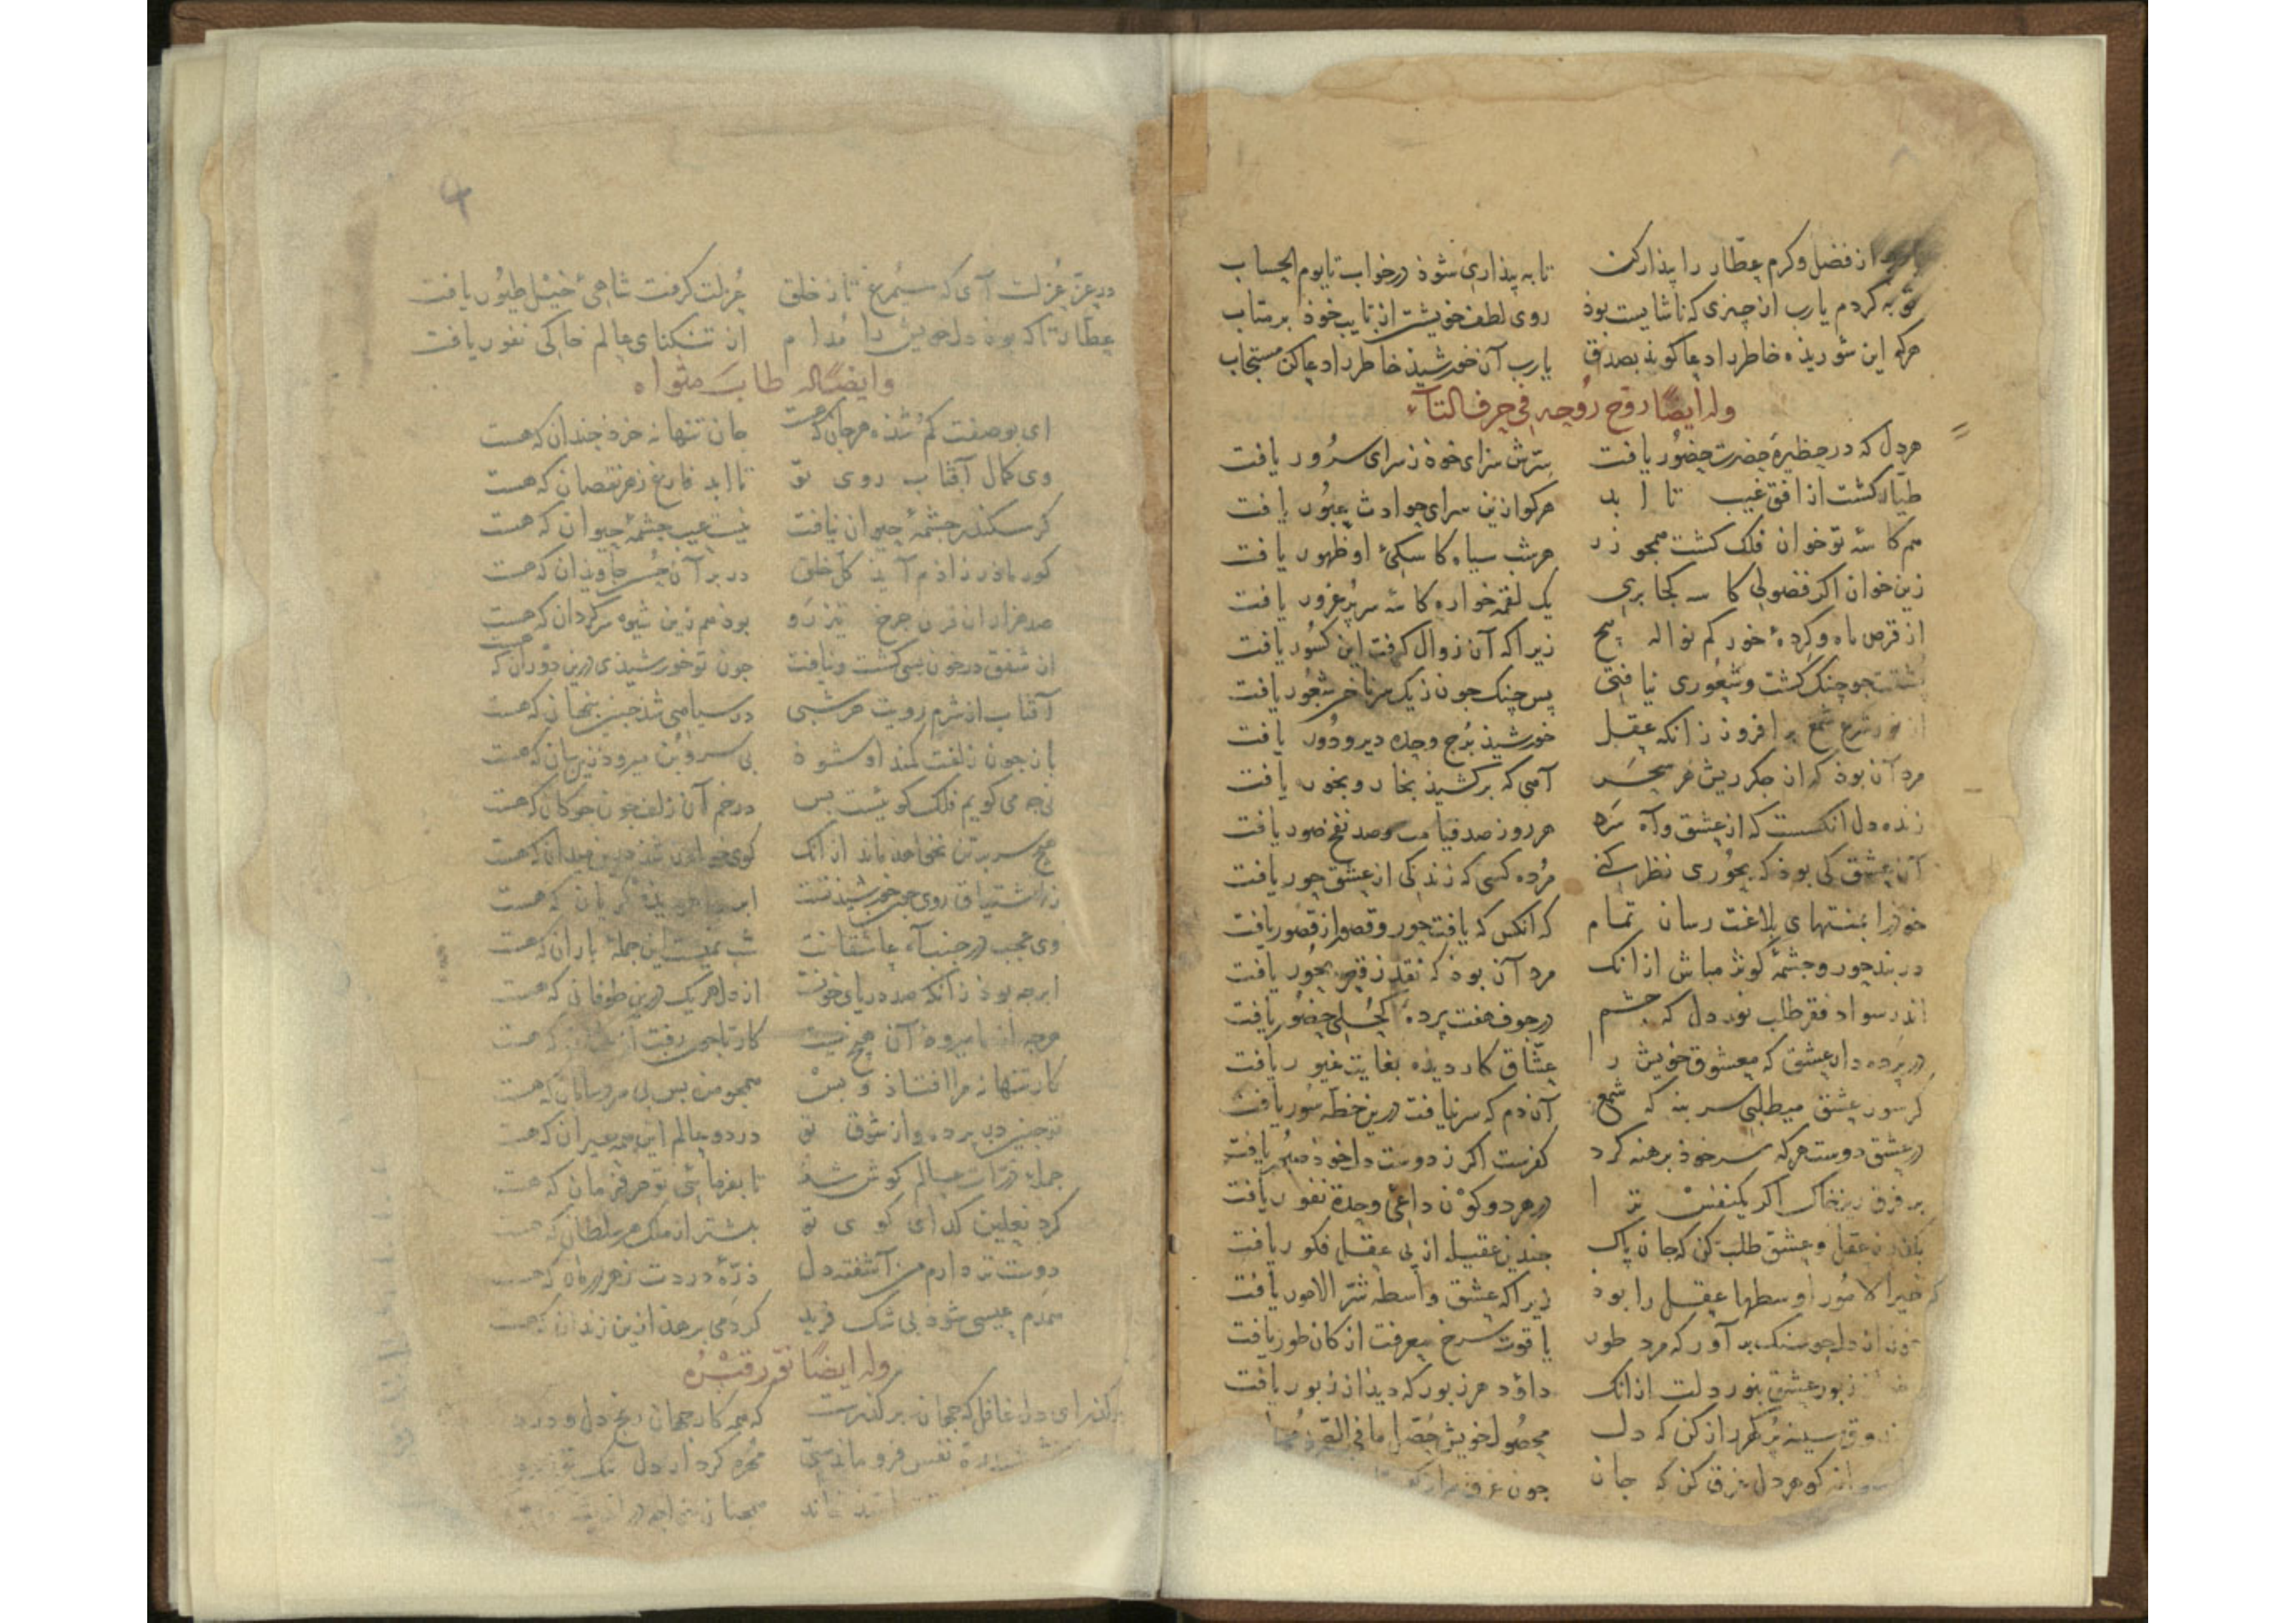 از فضل و کرم عطار را بیدار کن تا به بیداری شوذ در خواب تا یوم الحساب
توبه کردم یارب از چیزی که ناشایست بوذ روی لطف خویشتن از تایب خوذ برمتاب
هرکه این شوریذه خاطر را دعا کویذ بصدق یارب آن خورشیذ خاطر را دعا کن مستجاب
وله ایضا روح روحه فی حرف التآء
هر دل که در حظیرهٔ حضرت حضور یافت سرش سرای خوذ ز سرای سرور یافت
طیار کشت از افق غیب تا ابد هرکو ازین سرای حوادث عبور یافت
هم کاسهٔ تو خوان فلک کشت همجو زر هر شب سیاه کاسکیٔ او ظهور یافت
زین خوان اکر فضولی کاسه کجا بری یک لقمه خواره کاسهٔ سر پر غرور یافت
از قرص ماه و کردهٔ خور کم نواله پیچ زیرا که آن زوال کرفت این کسور یافت
جو چنک کشت و شعوری نیافتی پس چنک چون ز یک سر ناخن شعور یافت
از نور شرع شمع برافروز زانکه عقل خورشیذ برج وحده دیر و دور یافت
مرد آن بوذ که از جکر ریش هر سحر آهی که برکشیذ بخار و بخور یافت
زنده دل انکسست که از عشق وآه سره هر روز صد قیامت و صد نفخ صور یافت
آن عشق کی بوذ که بحوری نظر کنی مرده کسی که زندکی از عشق حور یافت
خوذ را بمنتهای بلاغت رسان تمام که انکس که یافت حور و قصور از قصور یافت
در بند حور و جشمهٔ کوثر مباش ازانک مرد آن بوذ که نقد ز قعر بحور یافت
اندر سواد فقر طلب نور دل که جشم در جوف هفت پرده کحلی حضور یافت
در پرده دار عشق که معشوق خویش را عشاق کار دیذه بغایت غیور یافت
کر سور عشق میطلبی سر بنه که شمع آن دم که سر نیافت درین خطه سور یافت
در عشق دوست هرکه سر خوذ برهنه کرد کفرست اکر ز دوست دل خوذ صبور یافت
بر فرق ریز خاک اکر یکنفس ترا در هر دو کون داعی وحدة نفور یافت
بکذر ز عقل و عشق طلب کن که جان پاک جندین عقیله از پی عقل فکور یافت
خیر الامور اوسطها عقل را بوذ زیرا که عشق واسطه شر الامور یافت
خون از دل جو سنک برآور که مرد طور یاقوت سرخ معرفت از کان طور یافت
زبور عشق بنور دلت ازانک داؤد هر زبور که دیذ از زبور یافت
ذوق سینه پر کهر راز کن که دل محصول خویش حصل ما فی الصدور
کوهر دل غرق کن که جان جون غرق
در عز عزلت آی که سیمرغ تا ز خلق عزلت کرفت شاهیٔ خیل طیور یافت
عطار تا که بوذ دل خویش را مدام از تنکنای عالم خاکی نفور یافت
وایضا له طاب مثواه
ای بوصفت کم شذه هر جان که هست جان تنها نه خرذ جندان که هست
وی کمال آفتاب روی تو تا ابد فارغ ز هر نقصان که هست
کر سکندر جشمهٔ حیوان نیافت نیست عیب جشمهٔ حیوان که هست
کور ماذر زاذم آیذ کل خلق در بر آن حسن جاویذان که هست
صد هزاران قرن جرخ تیز رو بوذ هم زین شیوه سرکردان که هست
ان شفق در خون بسی کشت و نیافت جون تو خورشیذی درین دوران که هست
آفتاب از شرم رویت هر شبی در سیاهی شذ جنین پنهان که هست
باز جون زلفت کمند او شوذ بی سر و بن میروذ زین سان که هست
نی جه می کویم فلک کوئیست بس در خم آن زلف جون جوکان که هست
هیچ سر بر تن نخواهذ ماند ازانک کوی میدان که هست
ز اشتیاق روی جون خورشیذ تست ابر کریان که هست
وی عجب در جنب آه عاشقانت شب نیست این جملهٔ باران که هست
ابر جه بوذ زانکه صد دریای خونست از دل هر یک درین طوفانی که هست
هرجه از ما میروذ آن هیچ نیست کار تا جون رفت که هست
کار تنها نه مرا افتاذ و بس همجو من بس بی سر و سامان که هست
تو جنین در پرده و از شوق تو در دو عالم این همه حیران که هست
جمله ذرات عالم کوش شذ تا بفرمائی تو هر فرمان که هست
کرد نعلین کدای کوی تو بیشتر از ملک هر سلطان که هست
دوست تر دارم من آشفته دل ذرهٔ دردت ز هر درمان که هست
همدم عیسی شوذ بی شک فرید کر دمی برهذ ازین زندان که هست
وله ایضا نور قبره
درکذر ای دل غافل که جهان برکذرست که همه کار جهان رنج دل و درد
نفس فرو ماند محرم کرد